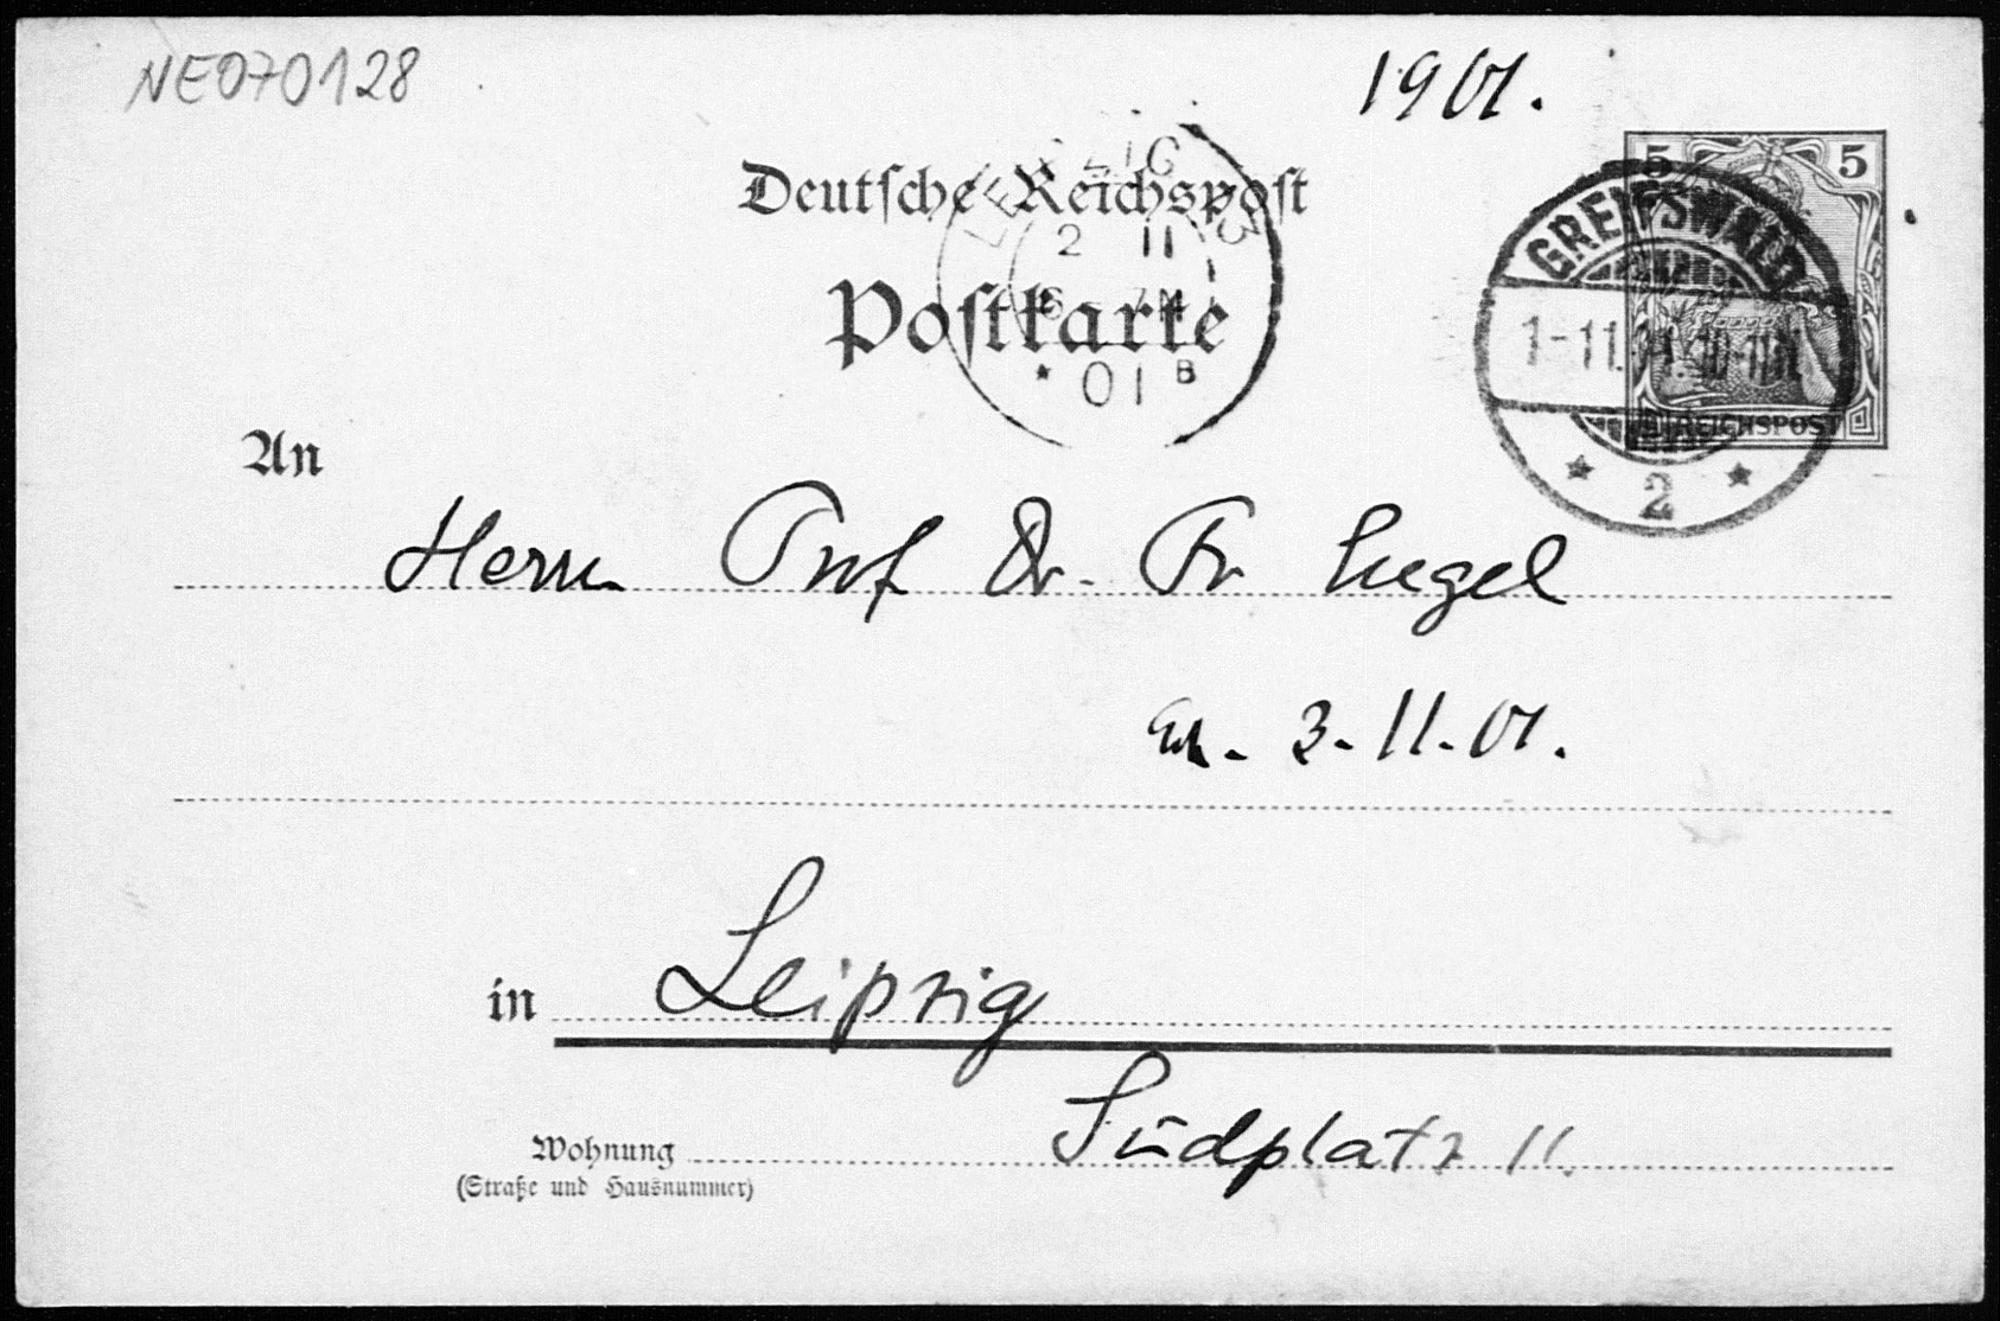 NE070128
1901.
Deutsche Reichspost
LEIPZIG 13
2 11
01 B
Postkarte
5 5
GREIFSWALD
1-11.01. 10-11N.
REICHSPOST
2
An
Herrn Prof Dr. Fr Engel
3.11.01.
in Leipzig
Südplatz 11.
Wohnung
(Straße und Hausnummer)